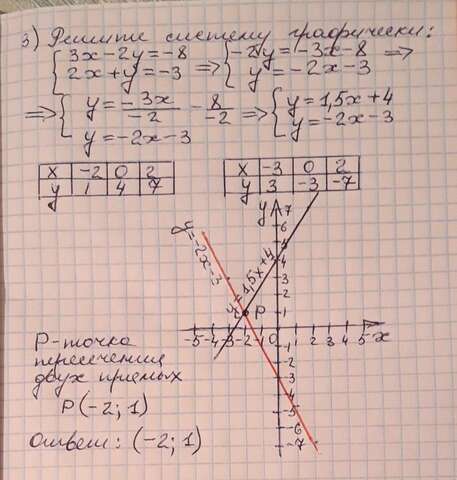 3) Решите систему графически:
{ 3x-2y=-8 ⇒ { -2y=-3x-8 ⇒
{ 2x+y=-3 { y=-2x-3
⇒ { y = -3x/-2 - 8/-2 ⇒ { y=1,5x+4
{ y=-2x-3 { y=-2x-3
x -2 0 2
y 1 4 7
x -3 0 2
y 3 -3 -7
y 7
6
5
4
3
2
1
y=-2x-3
y=1,5x+4
P
-5 -4 -3 -2 -1 0 1 2 3 4 5 x
-1
-2
-3
-4
-5
-6
-7
P-точка
пересечения
двух прямых
P(-2; 1)
Ответ: (-2; 1)